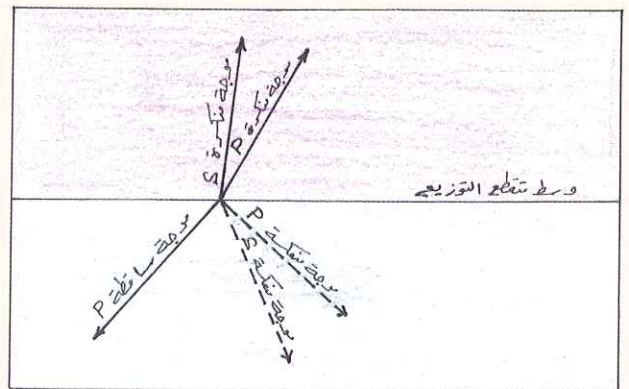 موجة منكسرة S
موجة منكسرة P
وسط متقطع التوزيع
موجة ساقطة P
موجة منعكسة S
موجة منعكسة P